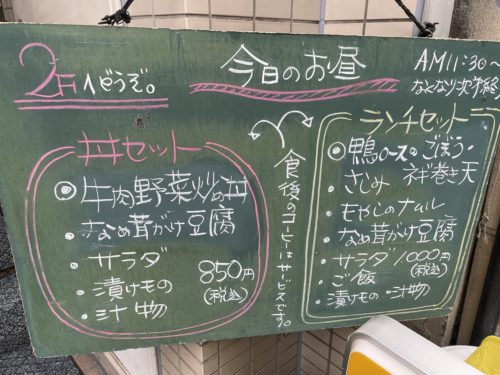 2Fへどうぞ。
今日のお昼
AM11:30〜
なくなり次第終
丼セット
◎牛肉野菜炒め丼
・なめ茸がけ豆腐
・サラダ
・漬けもの
・汁物
850円
(税込)
食後のコーヒーはサービスです。
ランチセット
◎鴨ロースのごぼう・
ネギ巻き天
・さしみ
・もやしのナムル
・なめ茸がけ豆腐
・サラダ
・ご飯
・漬けもの・汁物
1.000円
(税込)